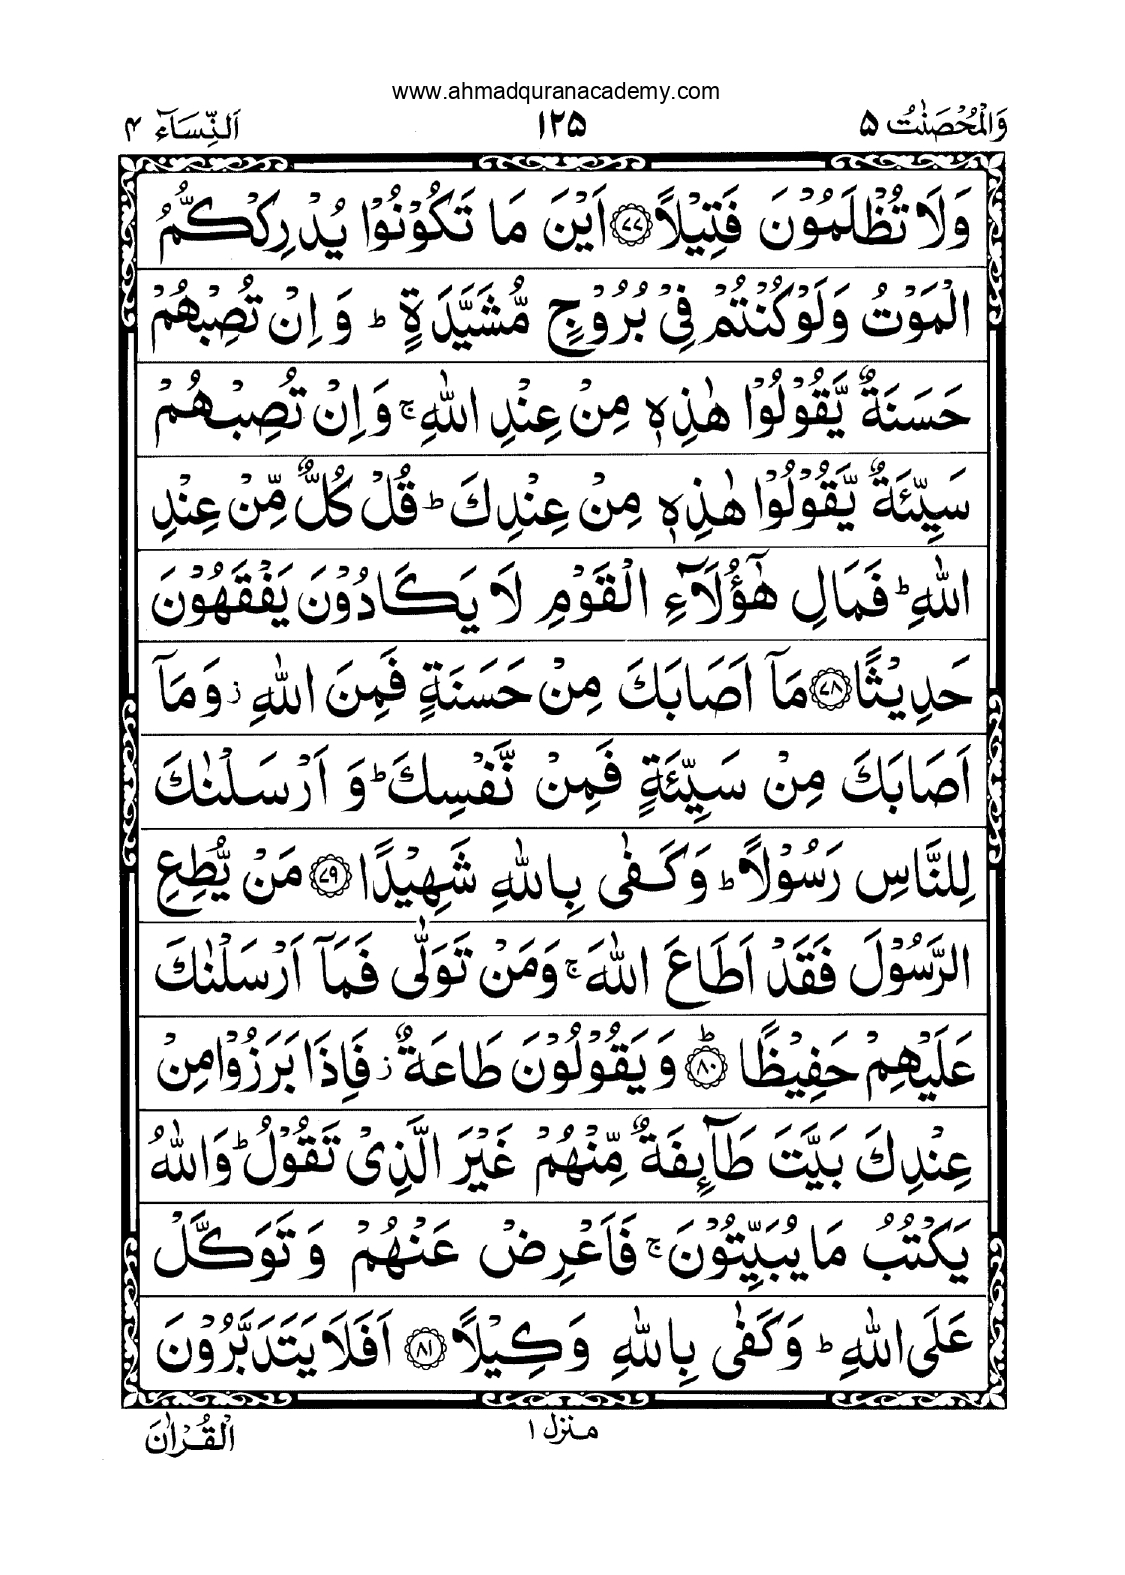 www.ahmadquranacademy.com
وَالْمُحْصَنٰتُ ۵ ۱۲۵ اَلنِّسَآء ۴
وَلَا تُظْلَمُوْنَ فَتِيْلًا ﴿۷۷﴾ اَيْنَ مَا تَكُوْنُوْا يُدْرِكْكُّمُ
الْمَوْتُ وَلَوْ كُنْتُمْ فِيْ بُرُوْجٍ مُّشَيَّدَةٍ ؕ وَ اِنْ تُصِبْهُمْ
حَسَنَةٌ يَّقُوْلُوْا هٰذِهٖ مِنْ عِنْدِ اللّٰهِ ۚ وَ اِنْ تُصِبْهُمْ
سَيِّئَةٌ يَّقُوْلُوْا هٰذِهٖ مِنْ عِنْدِكَ ؕ قُلْ كُلٌّ مِّنْ عِنْدِ
اللّٰهِ ؕ فَمَالِ هٰٓؤُلَآءِ الْقَوْمِ لَا يَكَادُوْنَ يَفْقَهُوْنَ
حَدِيْثًا ﴿۷۸﴾ مَآ اَصَابَكَ مِنْ حَسَنَةٍ فَمِنَ اللّٰهِ ز وَمَآ
اَصَابَكَ مِنْ سَيِّئَةٍ فَمِنْ نَّفْسِكَ ؕ وَ اَرْسَلْنٰكَ
لِلنَّاسِ رَسُوْلًا ؕ وَكَفٰى بِاللّٰهِ شَهِيْدًا ﴿۷۹﴾ مَنْ يُّطِعِ
الرَّسُوْلَ فَقَدْ اَطَاعَ اللّٰهَ ۚ وَمَنْ تَوَلّٰى فَمَآ اَرْسَلْنٰكَ
عَلَيْهِمْ حَفِيْظًا ﴿۸۰﴾ؕ وَ يَقُوْلُوْنَ طَاعَةٌ ز فَاِذَا بَرَزُوْا مِنْ
عِنْدِكَ بَيَّتَ طَآئِفَةٌ مِّنْهُمْ غَيْرَ الَّذِيْ تَقُوْلُ ؕ وَاللّٰهُ
يَكْتُبُ مَا يُبَيِّتُوْنَ ۚ فَاَعْرِضْ عَنْهُمْ وَ تَوَكَّلْ
عَلَى اللّٰهِ ؕ وَكَفٰى بِاللّٰهِ وَكِيْلًا ﴿۸۱﴾ اَفَلَا يَتَدَبَّرُوْنَ
منزل ۱ الْقُرْاٰنَ